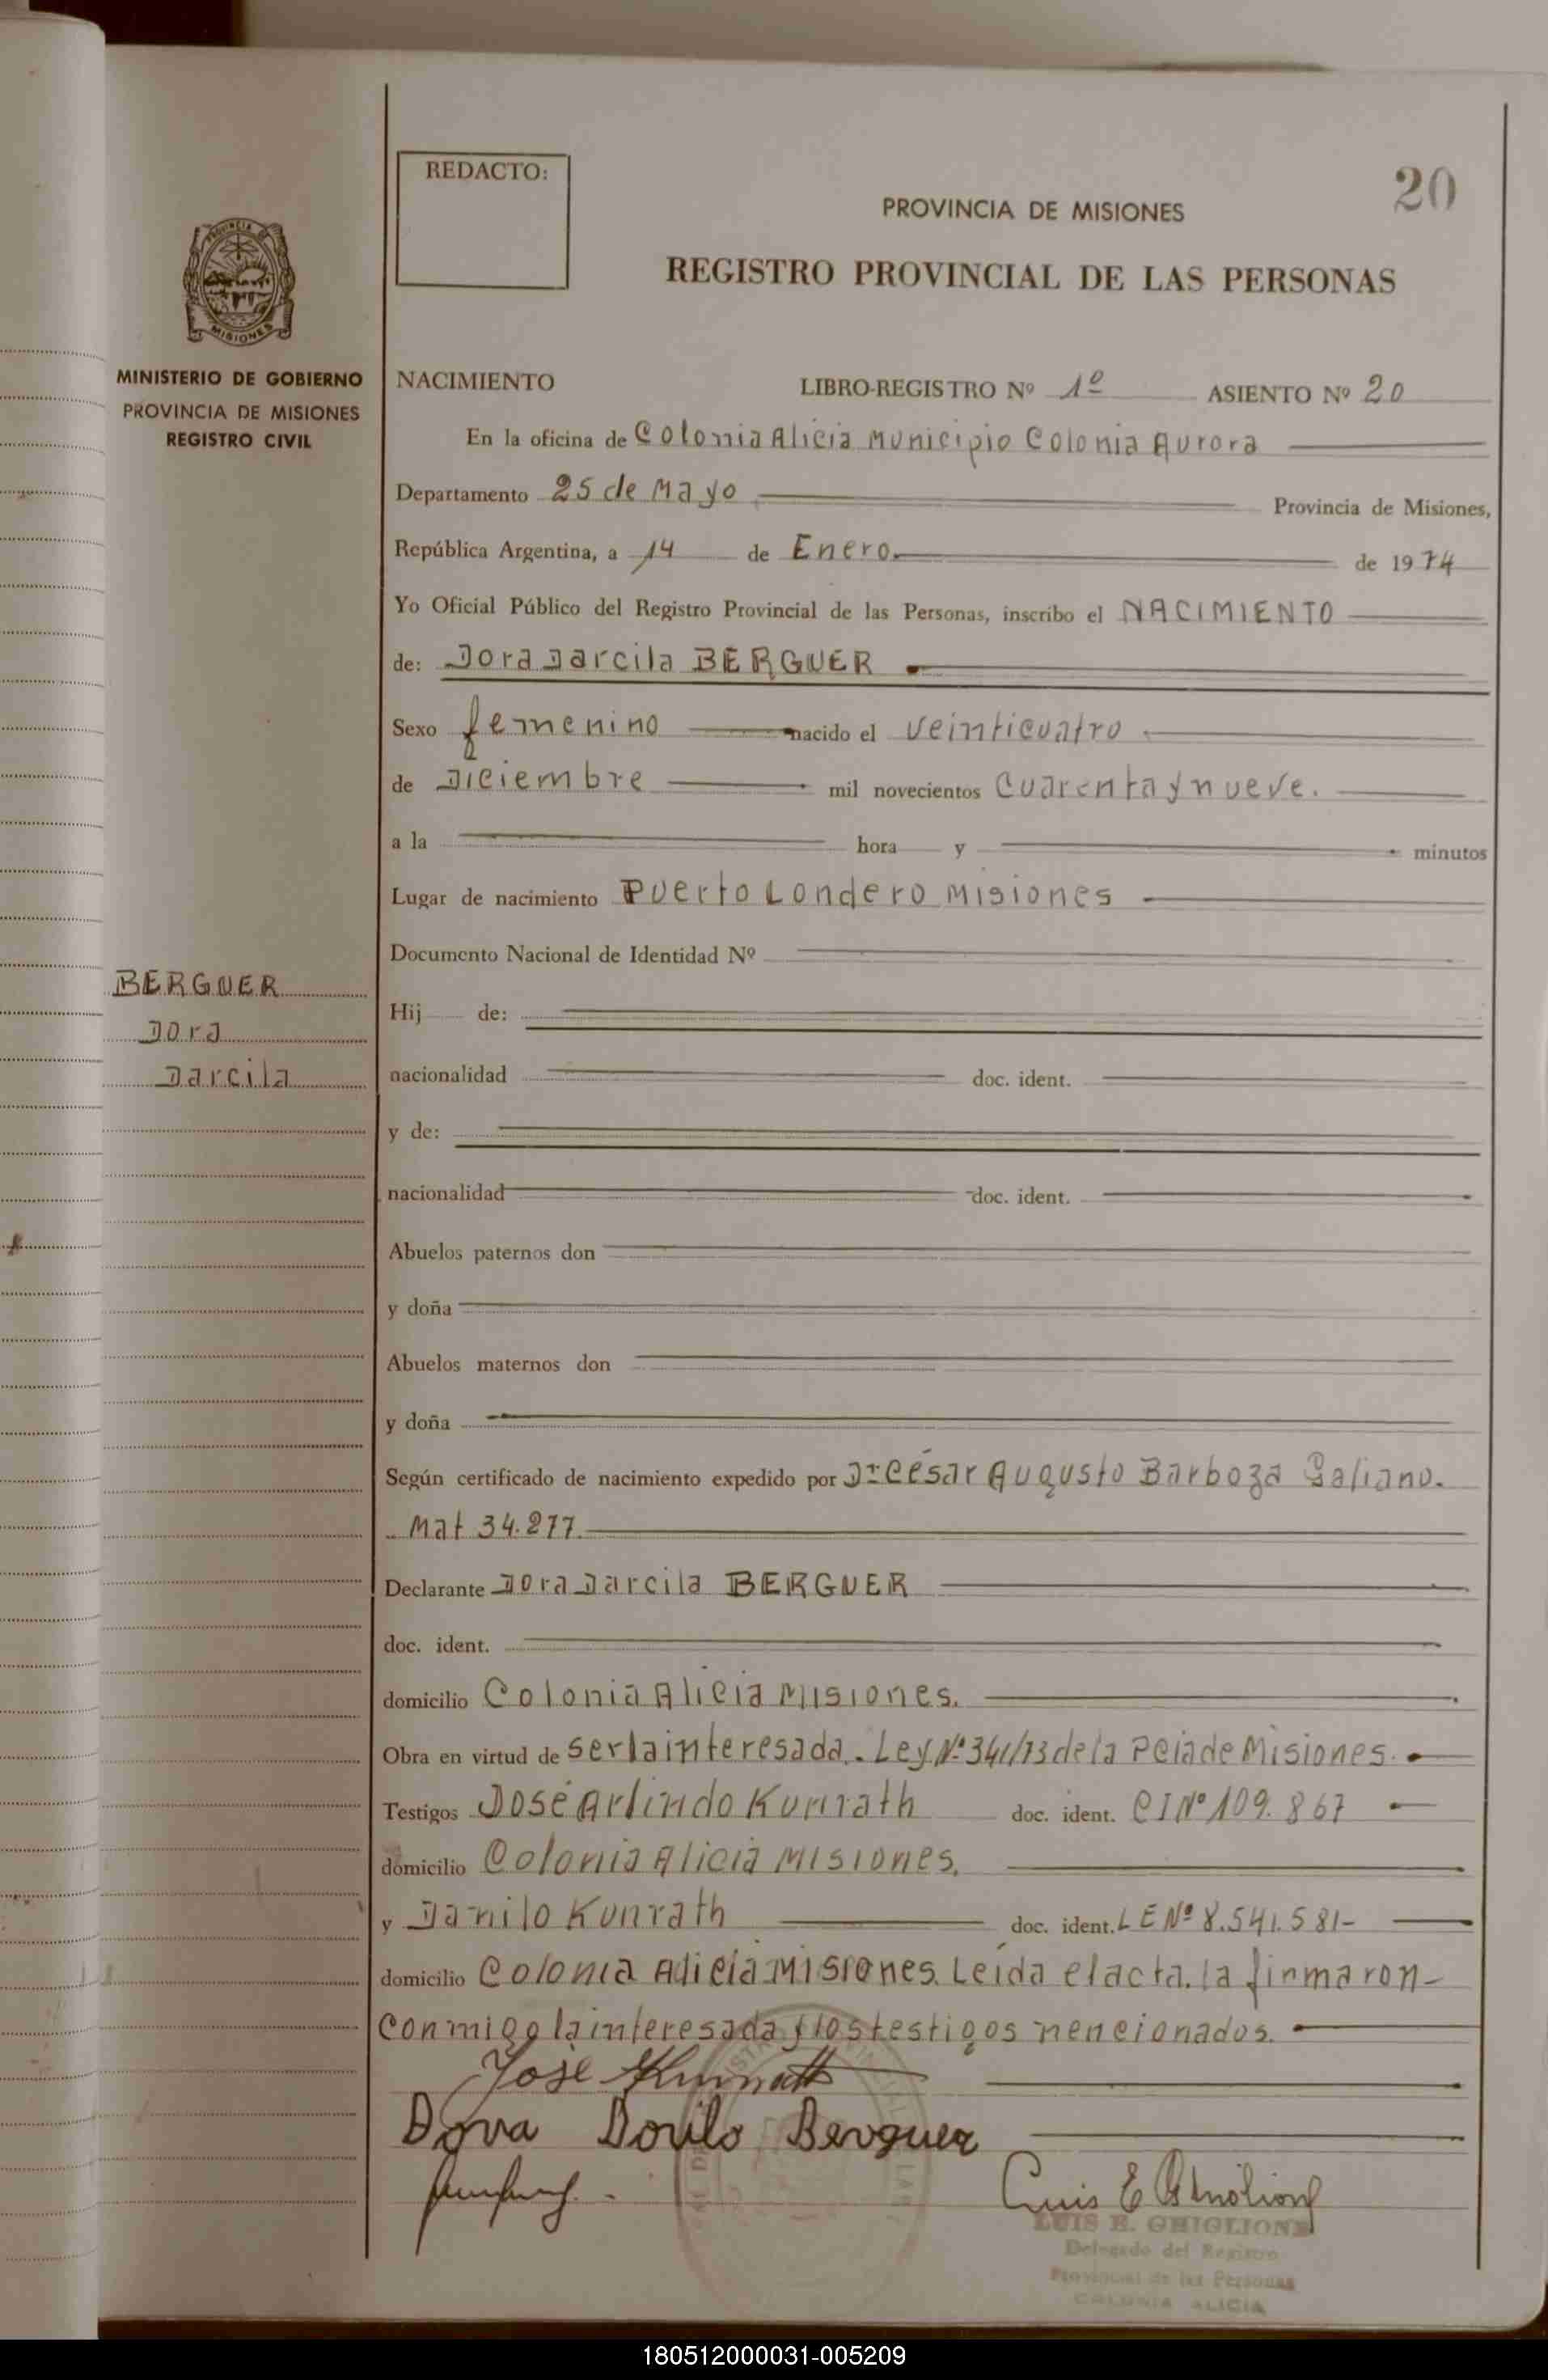 REDACTO:
20
PROVINCIA DE MISIONES
REGISTRO PROVINCIAL DE LAS PERSONAS
PROVINCIA DE
MISIONES
MINISTERIO DE GOBIERNO
PROVINCIA DE MISIONES
REGISTRO CIVIL
BERGUER
Dora
Darcila
NACIMIENTO LIBRO-REGISTRO Nº 1º ASIENTO Nº 20
En la oficina de Colonia Alicia Municipio Colonia Aurora
Departamento 25 de Mayo Provincia de Misiones,
República Argentina, a 14 de Enero de 1974
Yo Oficial Público del Registro Provincial de las Personas, inscribo el NACIMIENTO
de: Dora Darcila BERGUER
Sexo femenino nacido el veinticuatro
de Diciembre mil novecientos Cuarenta y nueve.
a la hora y minutos
Lugar de nacimiento Puerto Londero Misiones
Documento Nacional de Identidad Nº
Hij de:
nacionalidad doc. ident.
y de:
nacionalidad doc. ident.
Abuelos paternos don
y doña
Abuelos maternos don
y doña
Según certificado de nacimiento expedido por Dr César Augusto Barboza Galiano.
Mat 34.277.
Declarante Dora Darcila BERGUER
doc. ident.
domicilio Colonia Alicia Misiones.
Obra en virtud de ser la interesada. Ley Nº 341/73 de la Pcia de Misiones.
Testigos José Arlindo Kunrath doc. ident. CI Nº 109.867
domicilio Colonia Alicia Misiones.
y Danilo Kunrath doc. ident. LE Nº 8.541.581-
domicilio Colonia Alicia Misiones. Leída el acta. la firmaron-
conmigo la interesada y los testigos nencionados.
José Kunrath
Dora Dorilo Berguer
Luis E Ghiglione
LUIS E. GHIGLIONE
Delegado del Registro
Provincial de las Personas
COLONIA ALICIA
180512000031-005209